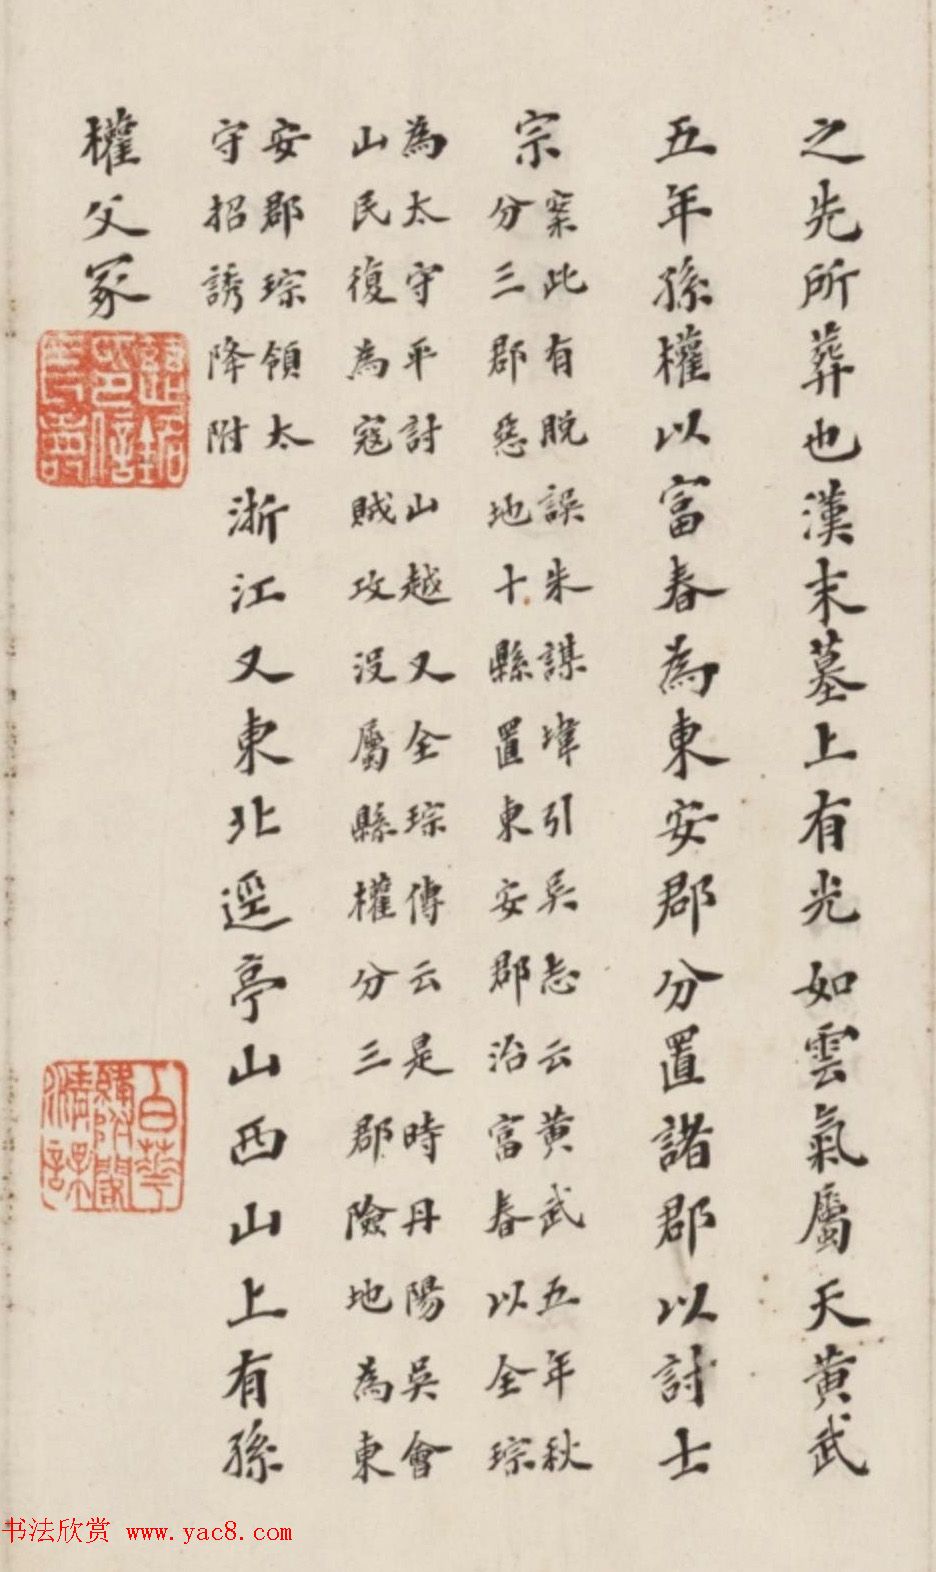 之先所葬也漢末墓上有光如雲氣屬天黄武
五年孫權以富春為東安郡分置諸郡以討士
宗
案此有脱誤朱謀㙔引吳志云黄武五年秋
分三郡惡地十縣置東安郡治富春以全琮
為太守平討山越又全琮傳云是時丹陽吳會
山民復為寇賊攻没屬縣權分三郡險地為東
安郡琮領太
守招誘降附
浙江又東北逕亭山西山上有孫
權父冢
书法欣赏 www.yac8.com